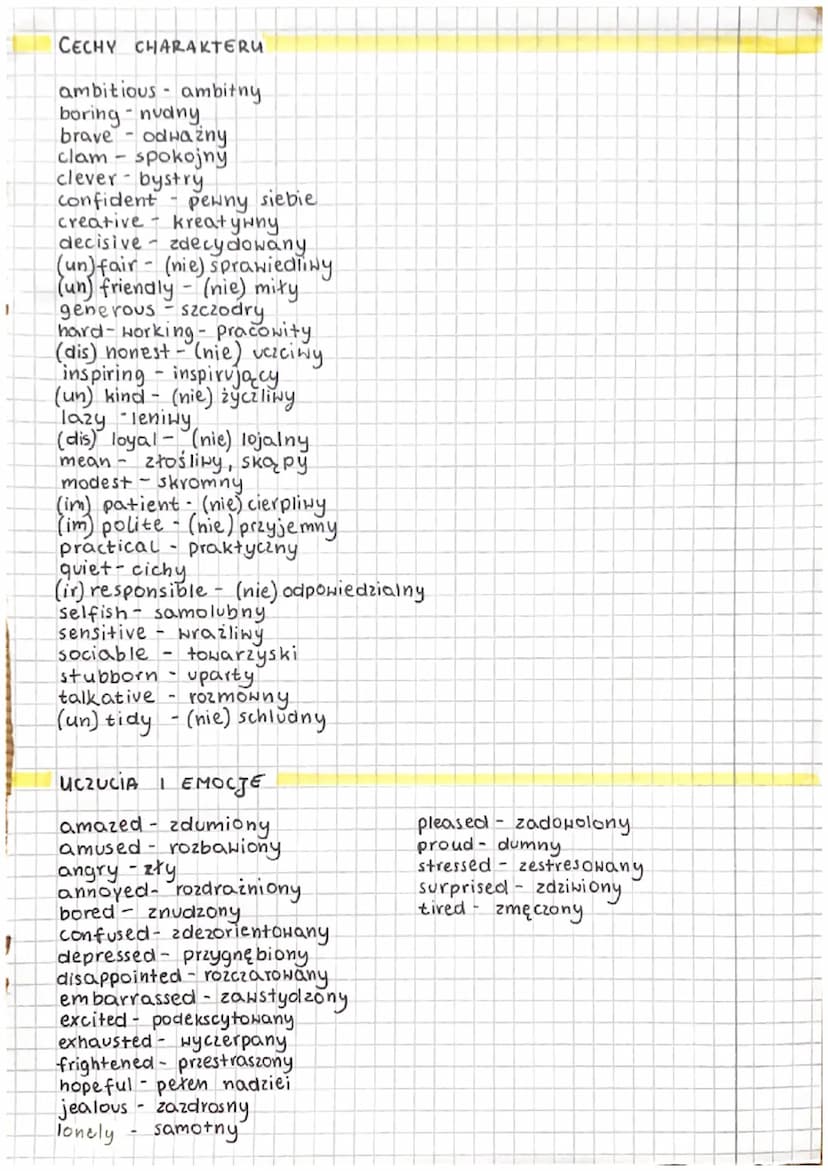 CECHY CHARAKTERU
ambitious - ambitny
boring - nudny
brave - odważny
clam - spokojny
clever - bystry
confident - pewny siebie
creative - kreatywny
decisive - zdecydowany
(un)fair - (nie) sprawiedliwy
(un) friendly - (nie) miły
generous - szczodry
hard-working - pracowity
(dis) honest - (nie) uczciwy
inspiring - inspirujący
(un) kind - (nie) życzliwy
lazy - leniwy
(dis) loyal - (nie) lojalny
mean - złośliwy, skąpy
modest - skromny
(im) patient - (nie) cierpliwy
(im) polite - (nie) przyjemny
practical - praktyczny
quiet - cichy
(ir) responsible - (nie) odpowiedzialny
selfish - samolubny
sensitive - wrażliwy
sociable - towarzyski
stubborn - uparty
talkative - rozmowny
(un) tidy - (nie) schludny
UCZUCIA I EMOCJE
amazed - zdumiony
amused - rozbawiony
angry - zły
annoyed - rozdrażniony
bored - znudzony
confused - zdezorientowany
depressed - przygnębiony
disappointed - rozczarowany
embarrassed - zawstydzony
excited - podekscytowany
exhausted - wyczerpany
frightened - przestraszony
hopeful - pełen nadziei
jealous - zazdrosny
lonely - samotny
pleased - zadowolony
proud - dumny
stressed - zestresowany
surprised - zdziwiony
tired - zmęczony